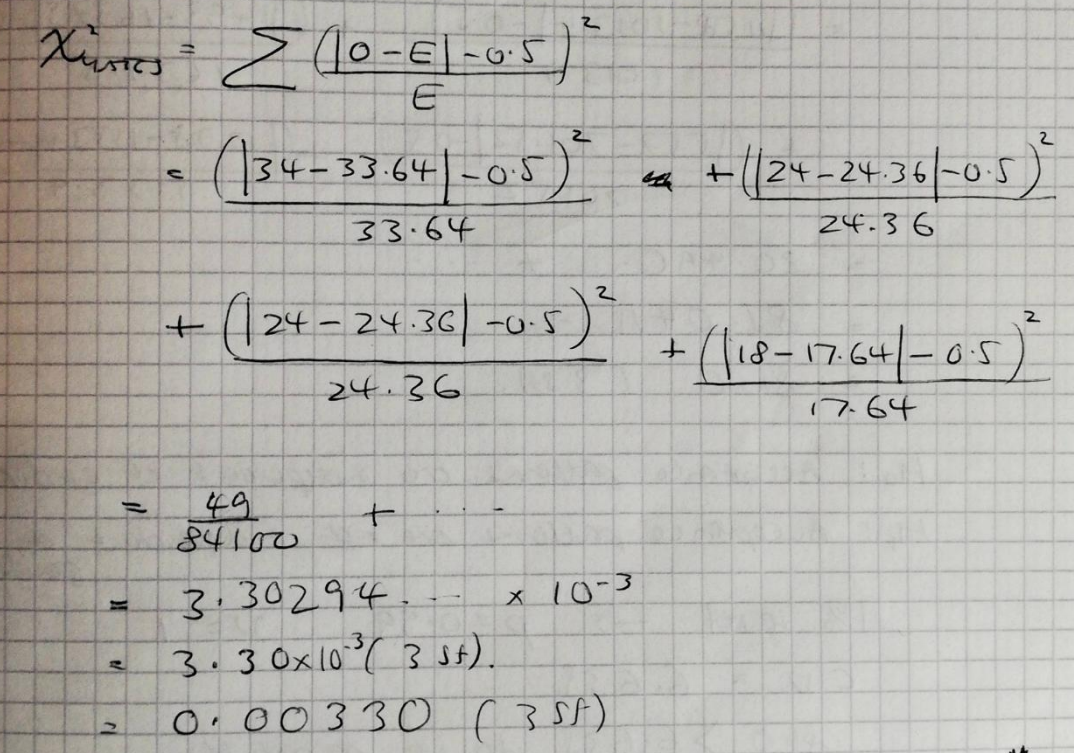 χ² = Σ (|O-E|-0.5)² / E
= (|34-33.64|-0.5)² / 33.64 + (|24-24.36|-0.5)² / 24.36
+ (|24-24.36|-0.5)² / 24.36 + (|18-17.64|-0.5)² / 17.64
= 49/84100 + ....
= 3.30294.... × 10⁻³
= 3.30×10⁻³ (3 sf).
= 0.00330 (3 sf)